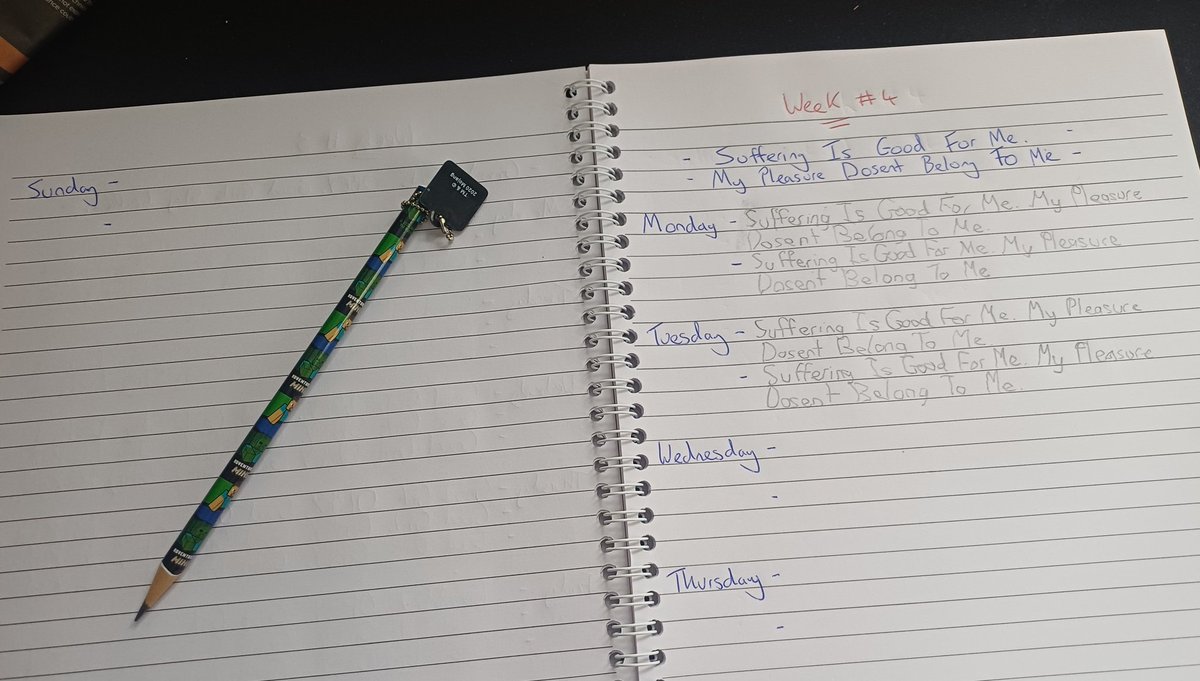 Sunday -
-
TM & ©
2020 Mojang
Week #4
- Suffering Is Good For Me. -
- My Pleasure Dosent Belong To Me -
Monday - Suffering Is Good For Me. My Pleasure
Dosent Belong To Me.
- Suffering Is Good For Me. My Pleasure
Dosent Belong To Me
Tuesday - Suffering Is Good For Me. My Pleasure
Dosent Belong To Me
- Suffering Is Good For Me. My Pleasure
Dosent Belong To Me.
Wednesday -
-
Thursday -
-